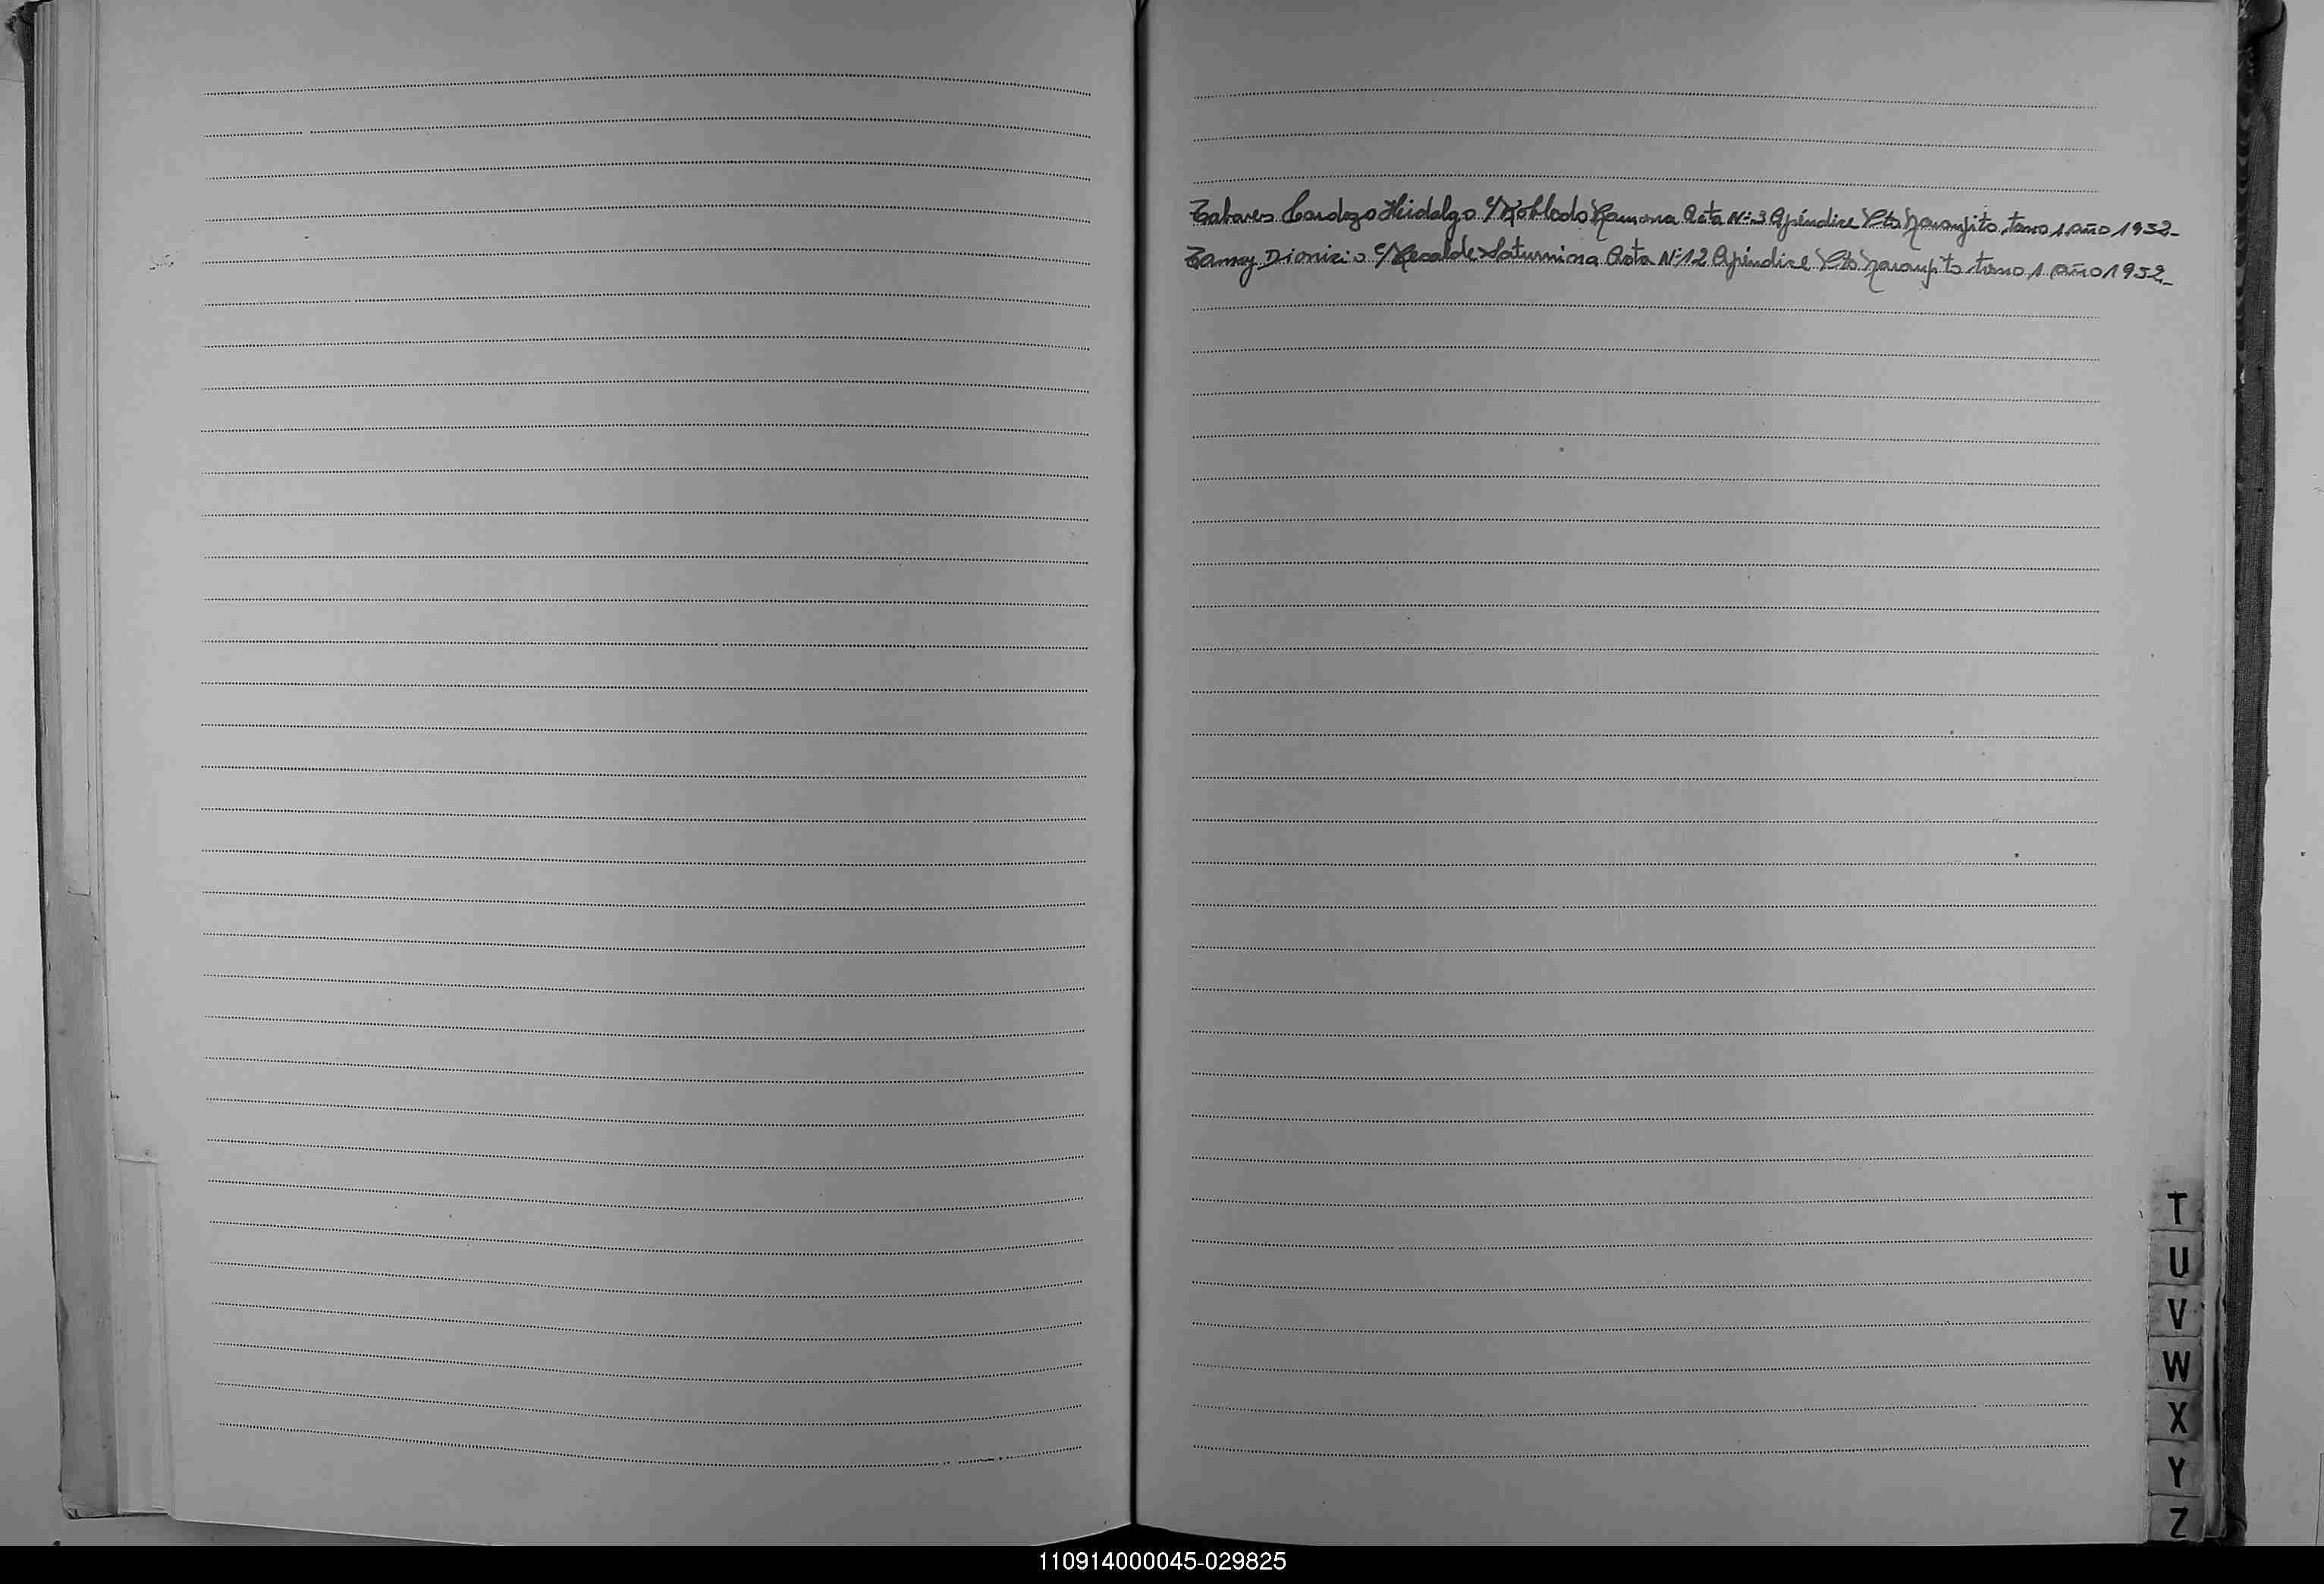 Tabares Cardozo Hidalgo c/ Robledo Ramona Acta Nº 3 Apéndice Pto Naranjito, tomo 1 año 1952-
Tamay Dionicio c/ Recalde Saturnina Acta Nº 12 Apéndice Pto Naranjito tomo 1 año 1952-
T
U
V
W
X
Y
Z
110914000045-029825